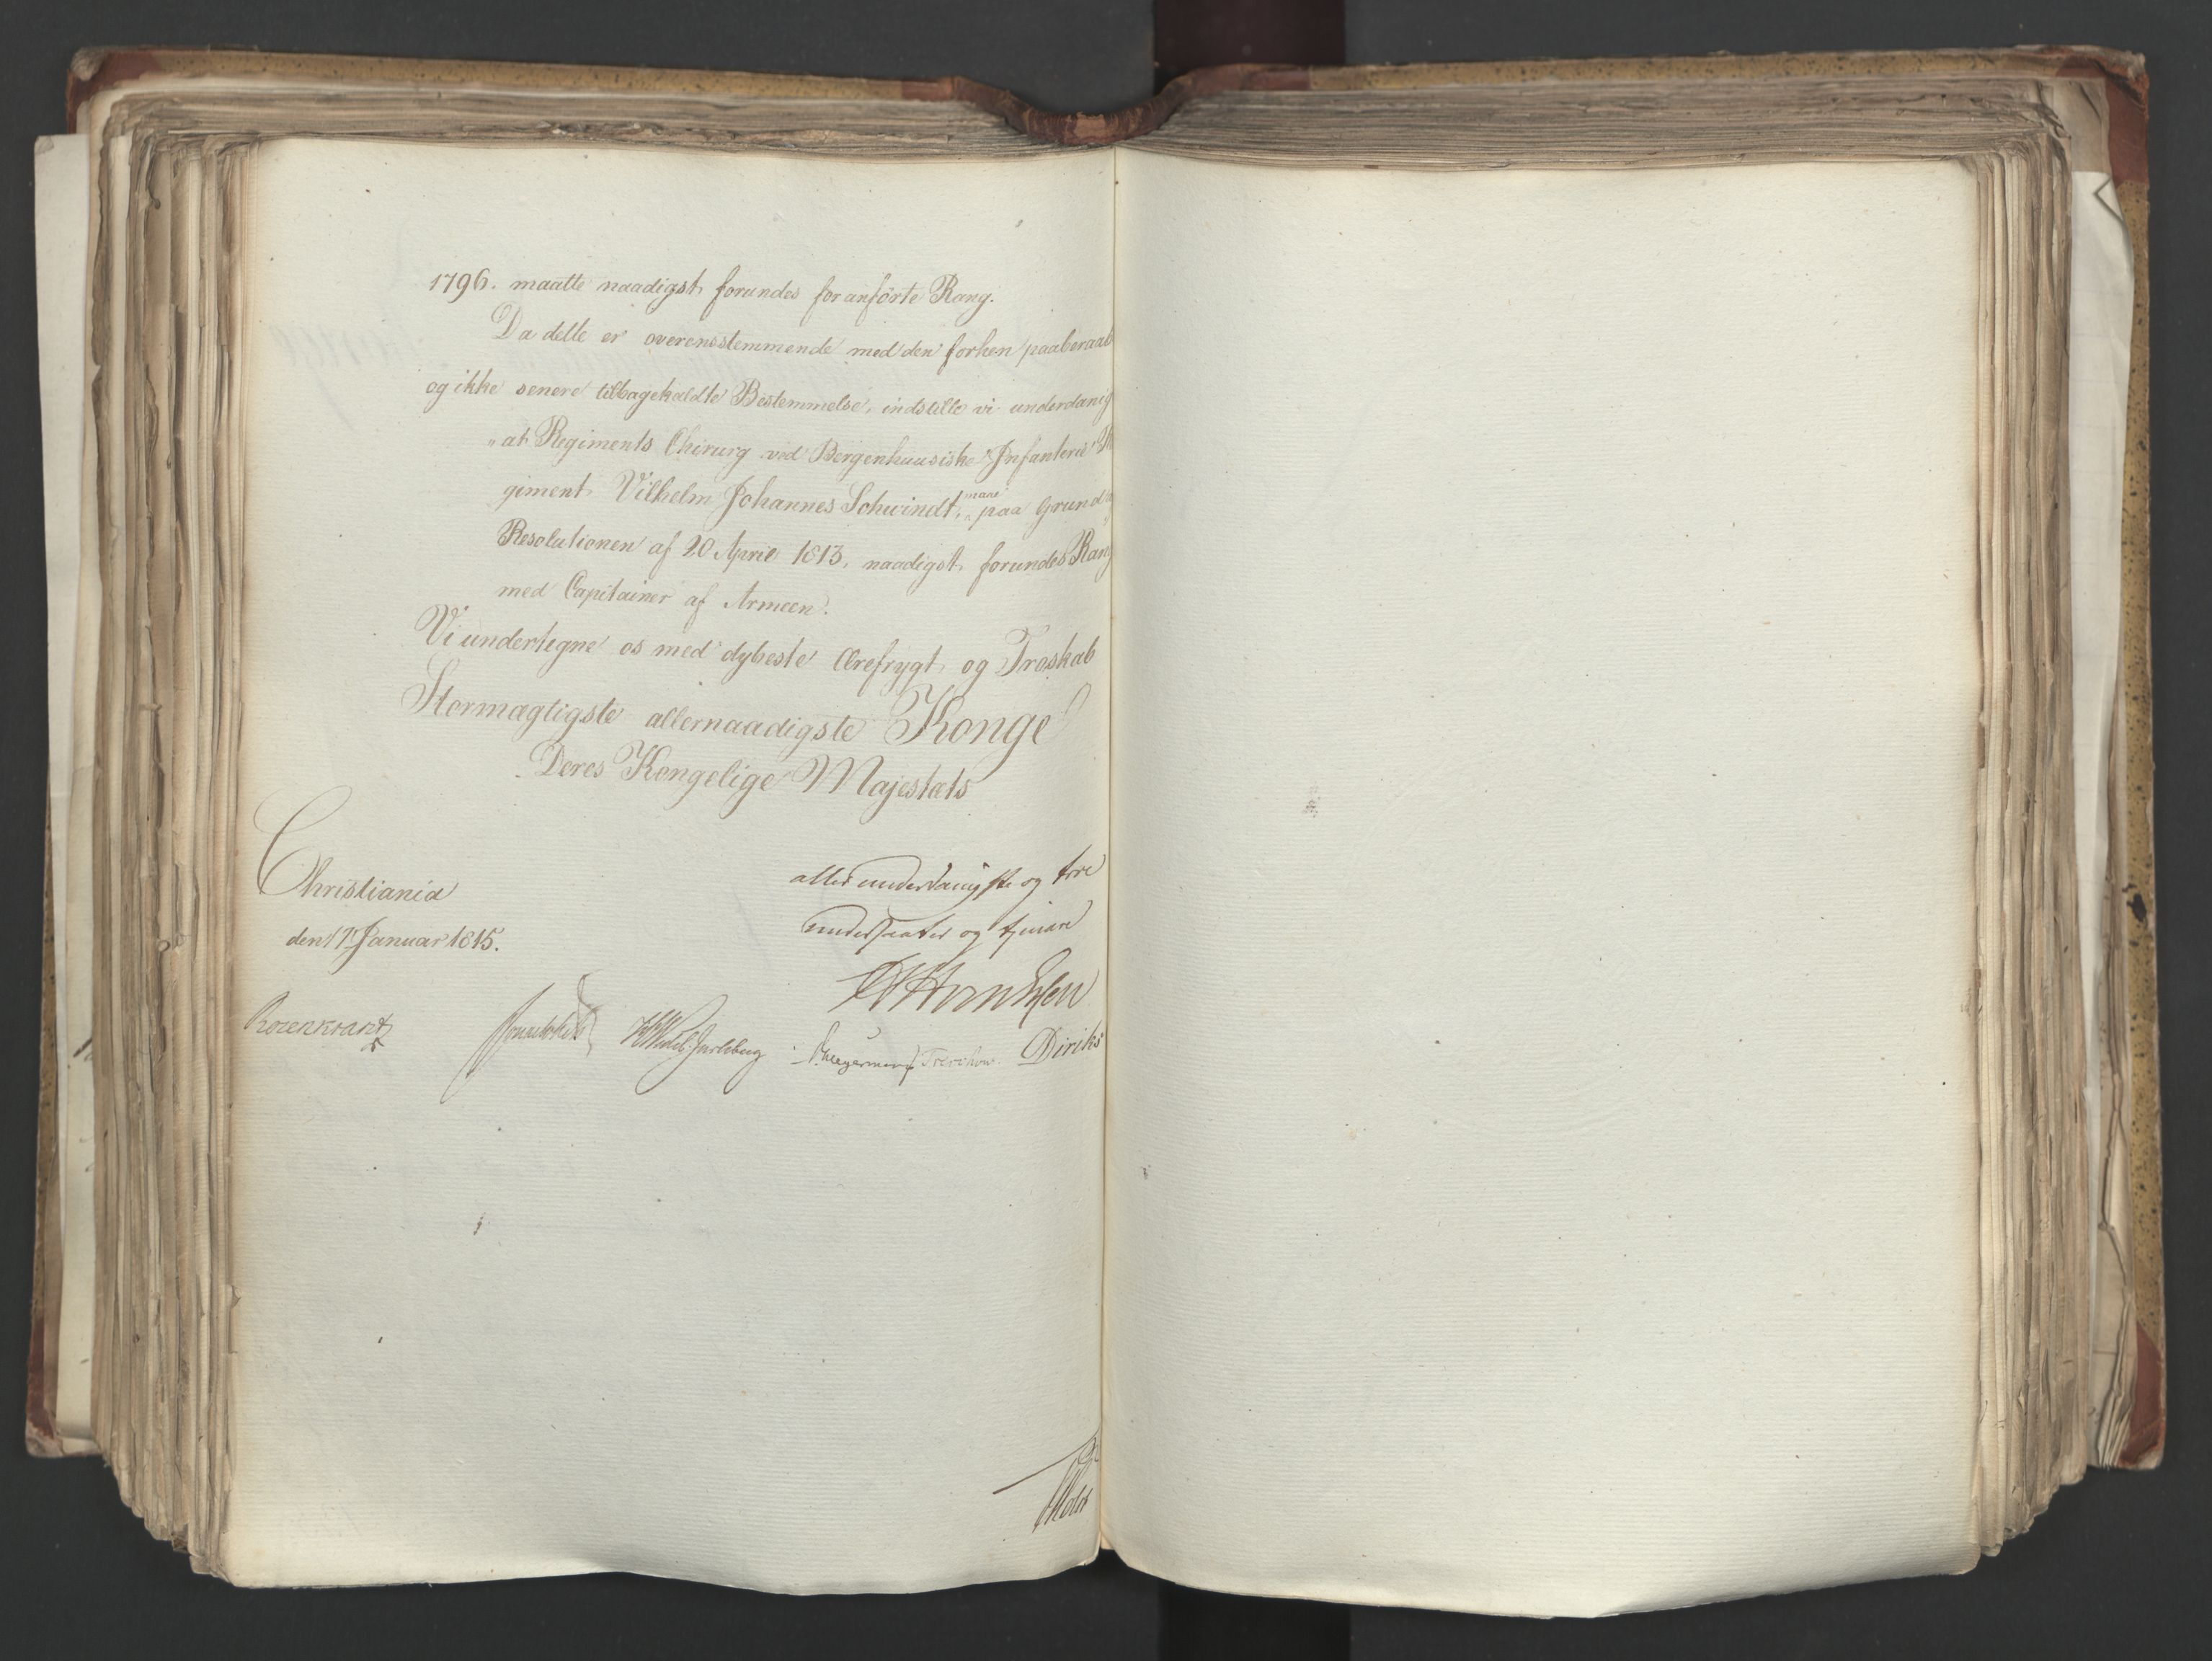 1796. maatte naadigst forundes foranførte Rang.
Da dette er overensstemmende med den forhen paaberaab
og ikke senere tilbagekaldte Bestemmelse, indstille vi underdanig
" at Regiments Chirurg ved Bergenhuusiske Infanterie
giment Vilhelm Johannes Schwindt, paa Grund
Resolutionen af 20 April 1813, naadigst forundes Rang
med Capitainer af Armeen.
Vi undertegne os med dybeste Ærefrygt og Troskab
Stormægtigste allernaadigste Konge
Deres Kongelige Majestæts
Christiania
den 17 Januar 1815.
allerunderdanigste og troe
undersaatter og tjenere
Rosenkrantz
Sommerhielm
Wedel Jarlsberg
Hegermann
Treschow.
Diriks
Holst